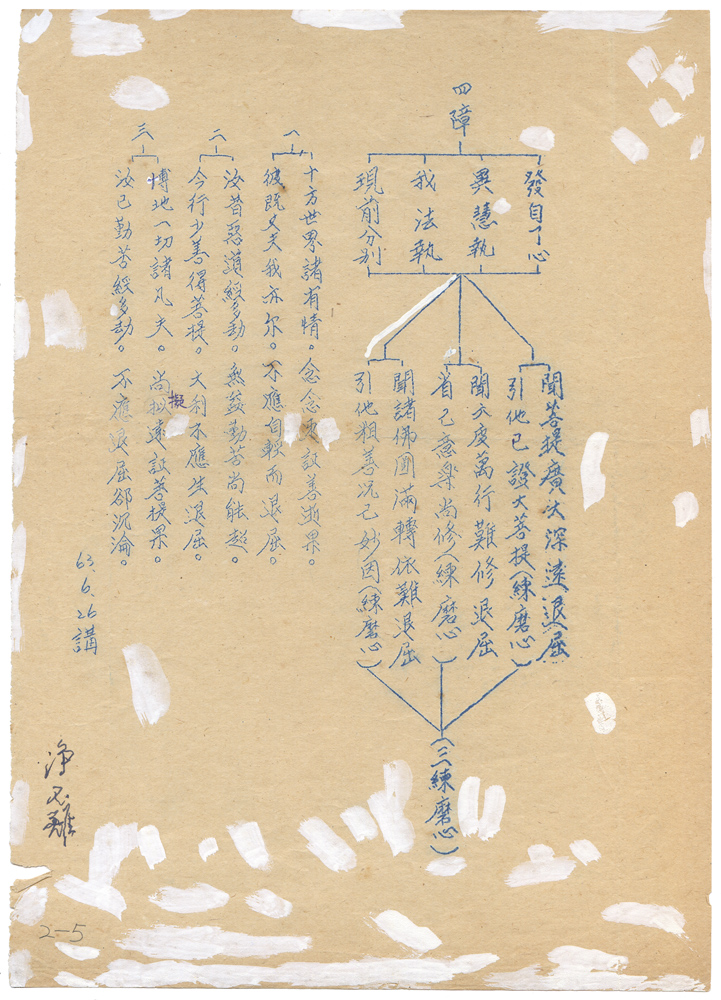 四障
發自了心
異慧執
我法執
現前分別
聞菩提廣大深遠退屈
引他已證大菩提（練磨心）
聞六度萬行難修退屈
省己意樂尚修（練磨心）
聞諸佛圓滿轉依難退屈
引他粗善況己妙因（練磨心）
（三練磨心）
一
十方世界諸有情。念念 証善逝果。
彼既丈夫我亦尔。不應自輕而退屈。
二
汝昔惡道經多劫。無益勤苦尚能超。
今行少善得菩提。大利不應生退屈。
三
博地一切諸凡夫。尚拟遠証菩提果。
擬
汝已勤苦經多劫。不應退屈卻沉淪。
63.6.26講
淨 難
2-5